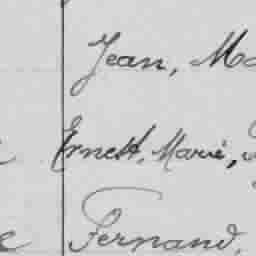 Jean, Ma
Ernest, Marie,
Fernand,